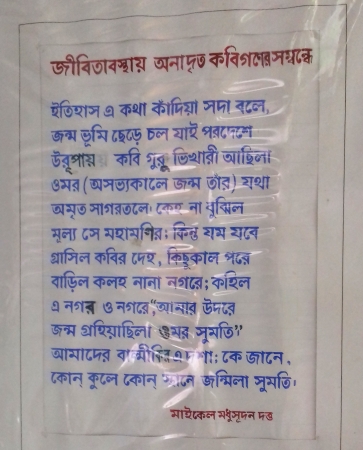 জীবিতাবস্থায় অনাদৃত কবিগনের সম্বন্ধে
ইতিহাস এ কথা কাঁদিয়া সদা বলে,
জন্ম ভূমি ছেড়ে চল যাই পরদেশে
উরুপায় কবি গুরু ভিখারী আছিলা
ওমর (অসভ্যকালে জন্ম তাঁর) যথা
অমৃত সাগরতলে। কেহ না বুঝিল
মূল্য সে মহামণির; কিন্তু যম যবে
গ্রাসিল কবির দেহ, কিছুকাল পরে
বাড়িল কলহ নানা নগরে; কহিল
এ নগর ও নগরে, "আমার উদরে
জন্ম গ্রহিয়াছিলা ওমর সুমতি"
আমাদের বাল্মীকির এ দশা; কে জানে,
কোন্ কুলে কোন্ স্থানে জন্মিলা সুমতি।
মাইকেল মধুসূদন দত্ত